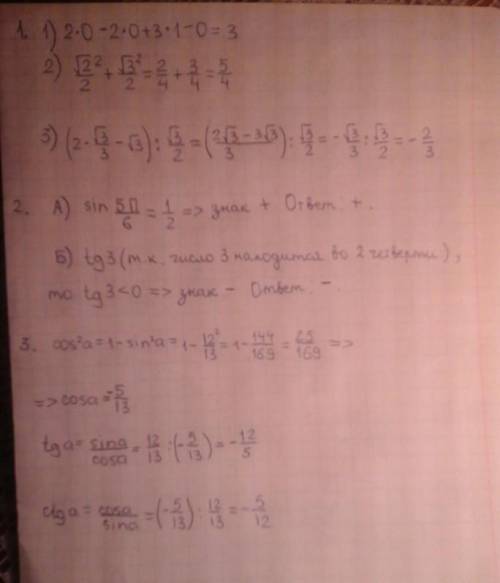 1. 1) 2·0-2·0+3·1-0=3
2) √2²/2 + √3²/2 = 2/4 + 3/4 = 5/4
3) (2·√3/3 - √3) : √3/2 = (2√3-3√3/3) : √3/2 = -√3/3 : √3/2 = -2/3
2. А) sin 5П/6 = 1/2 => знак + Ответ. +.
Б) tg3 (т.к. число 3 находится во 2 четверти),
то tg3<0 => знак - Ответ. -.
3. cos²a=1-sin²a=1-12²/13=1-144/169=25/169 =>
=> cosa=-5/13
tga=sina/cosa=12/13:(-5/13)=-12/5
ctga=cosa/sina=(-5/13):12/13=-5/12